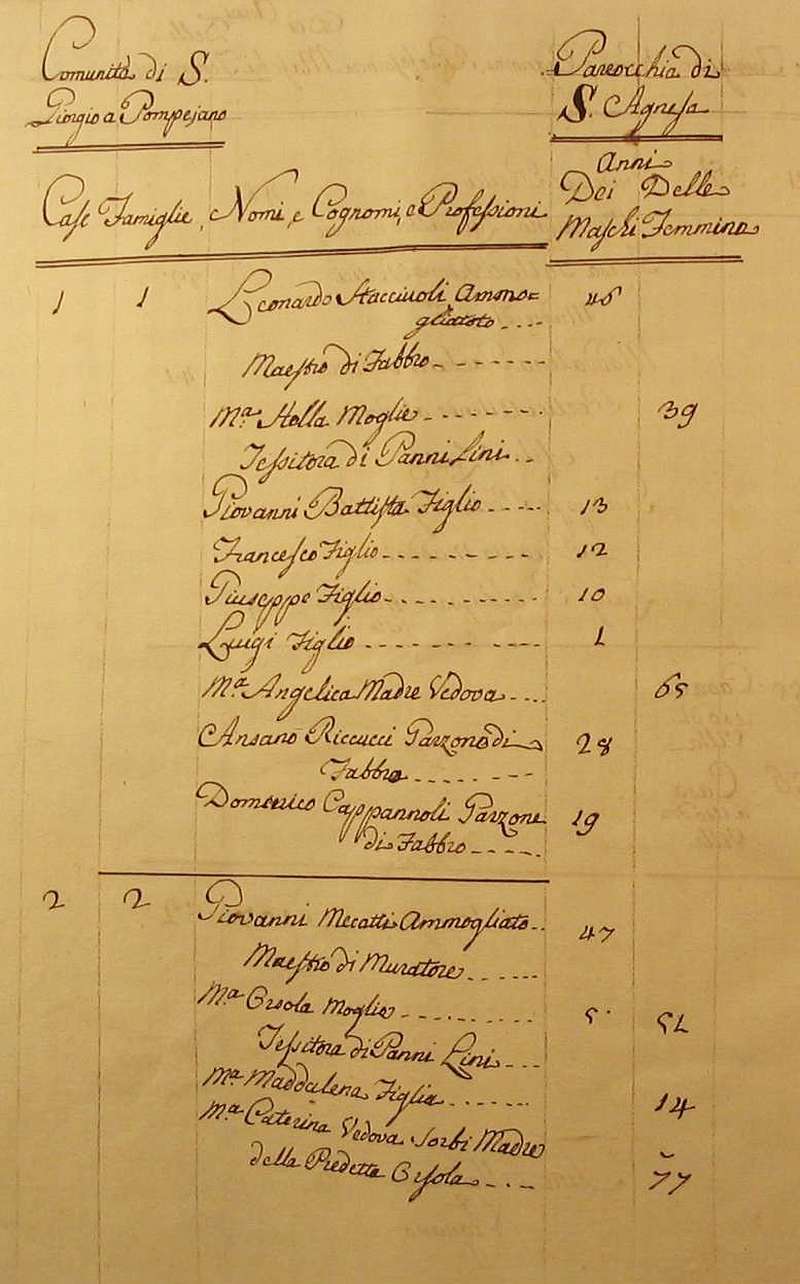 Comunità di S.
Giorgio a Pompejano
Parrocchia di
S. Agnesa
Case Famiglie, Nomi, e Cognomi, e Professioni
Anni
Dei Delle
Maschi Femmine
1 1 Leonardo Stacciuoli Ammo=
gliato 46
Maestro di Fabbro
M.a Stella Moglie 39
Tessitora di Panni Lini
Giovanni Battista Figlio 13
Francesco Figlio 12
Giuseppe Figlio 10
Luigi Figlio 1
M.a Angelica Madre Vedova 65
Ansano Riccucci Garzone di
Fabbro 28
Domenico Cappannoli Garzone
di Fabbro 19
2 2 Giovanni Mecatti Ammogliato 47
Maestro di Muratore
M.a Orsola Moglie 52
Tessitora di Panni Lini
M.a Maddalena Figlia 14
M.a Caterina Vedova Sorbi Madre
della Predetta Orsola 77